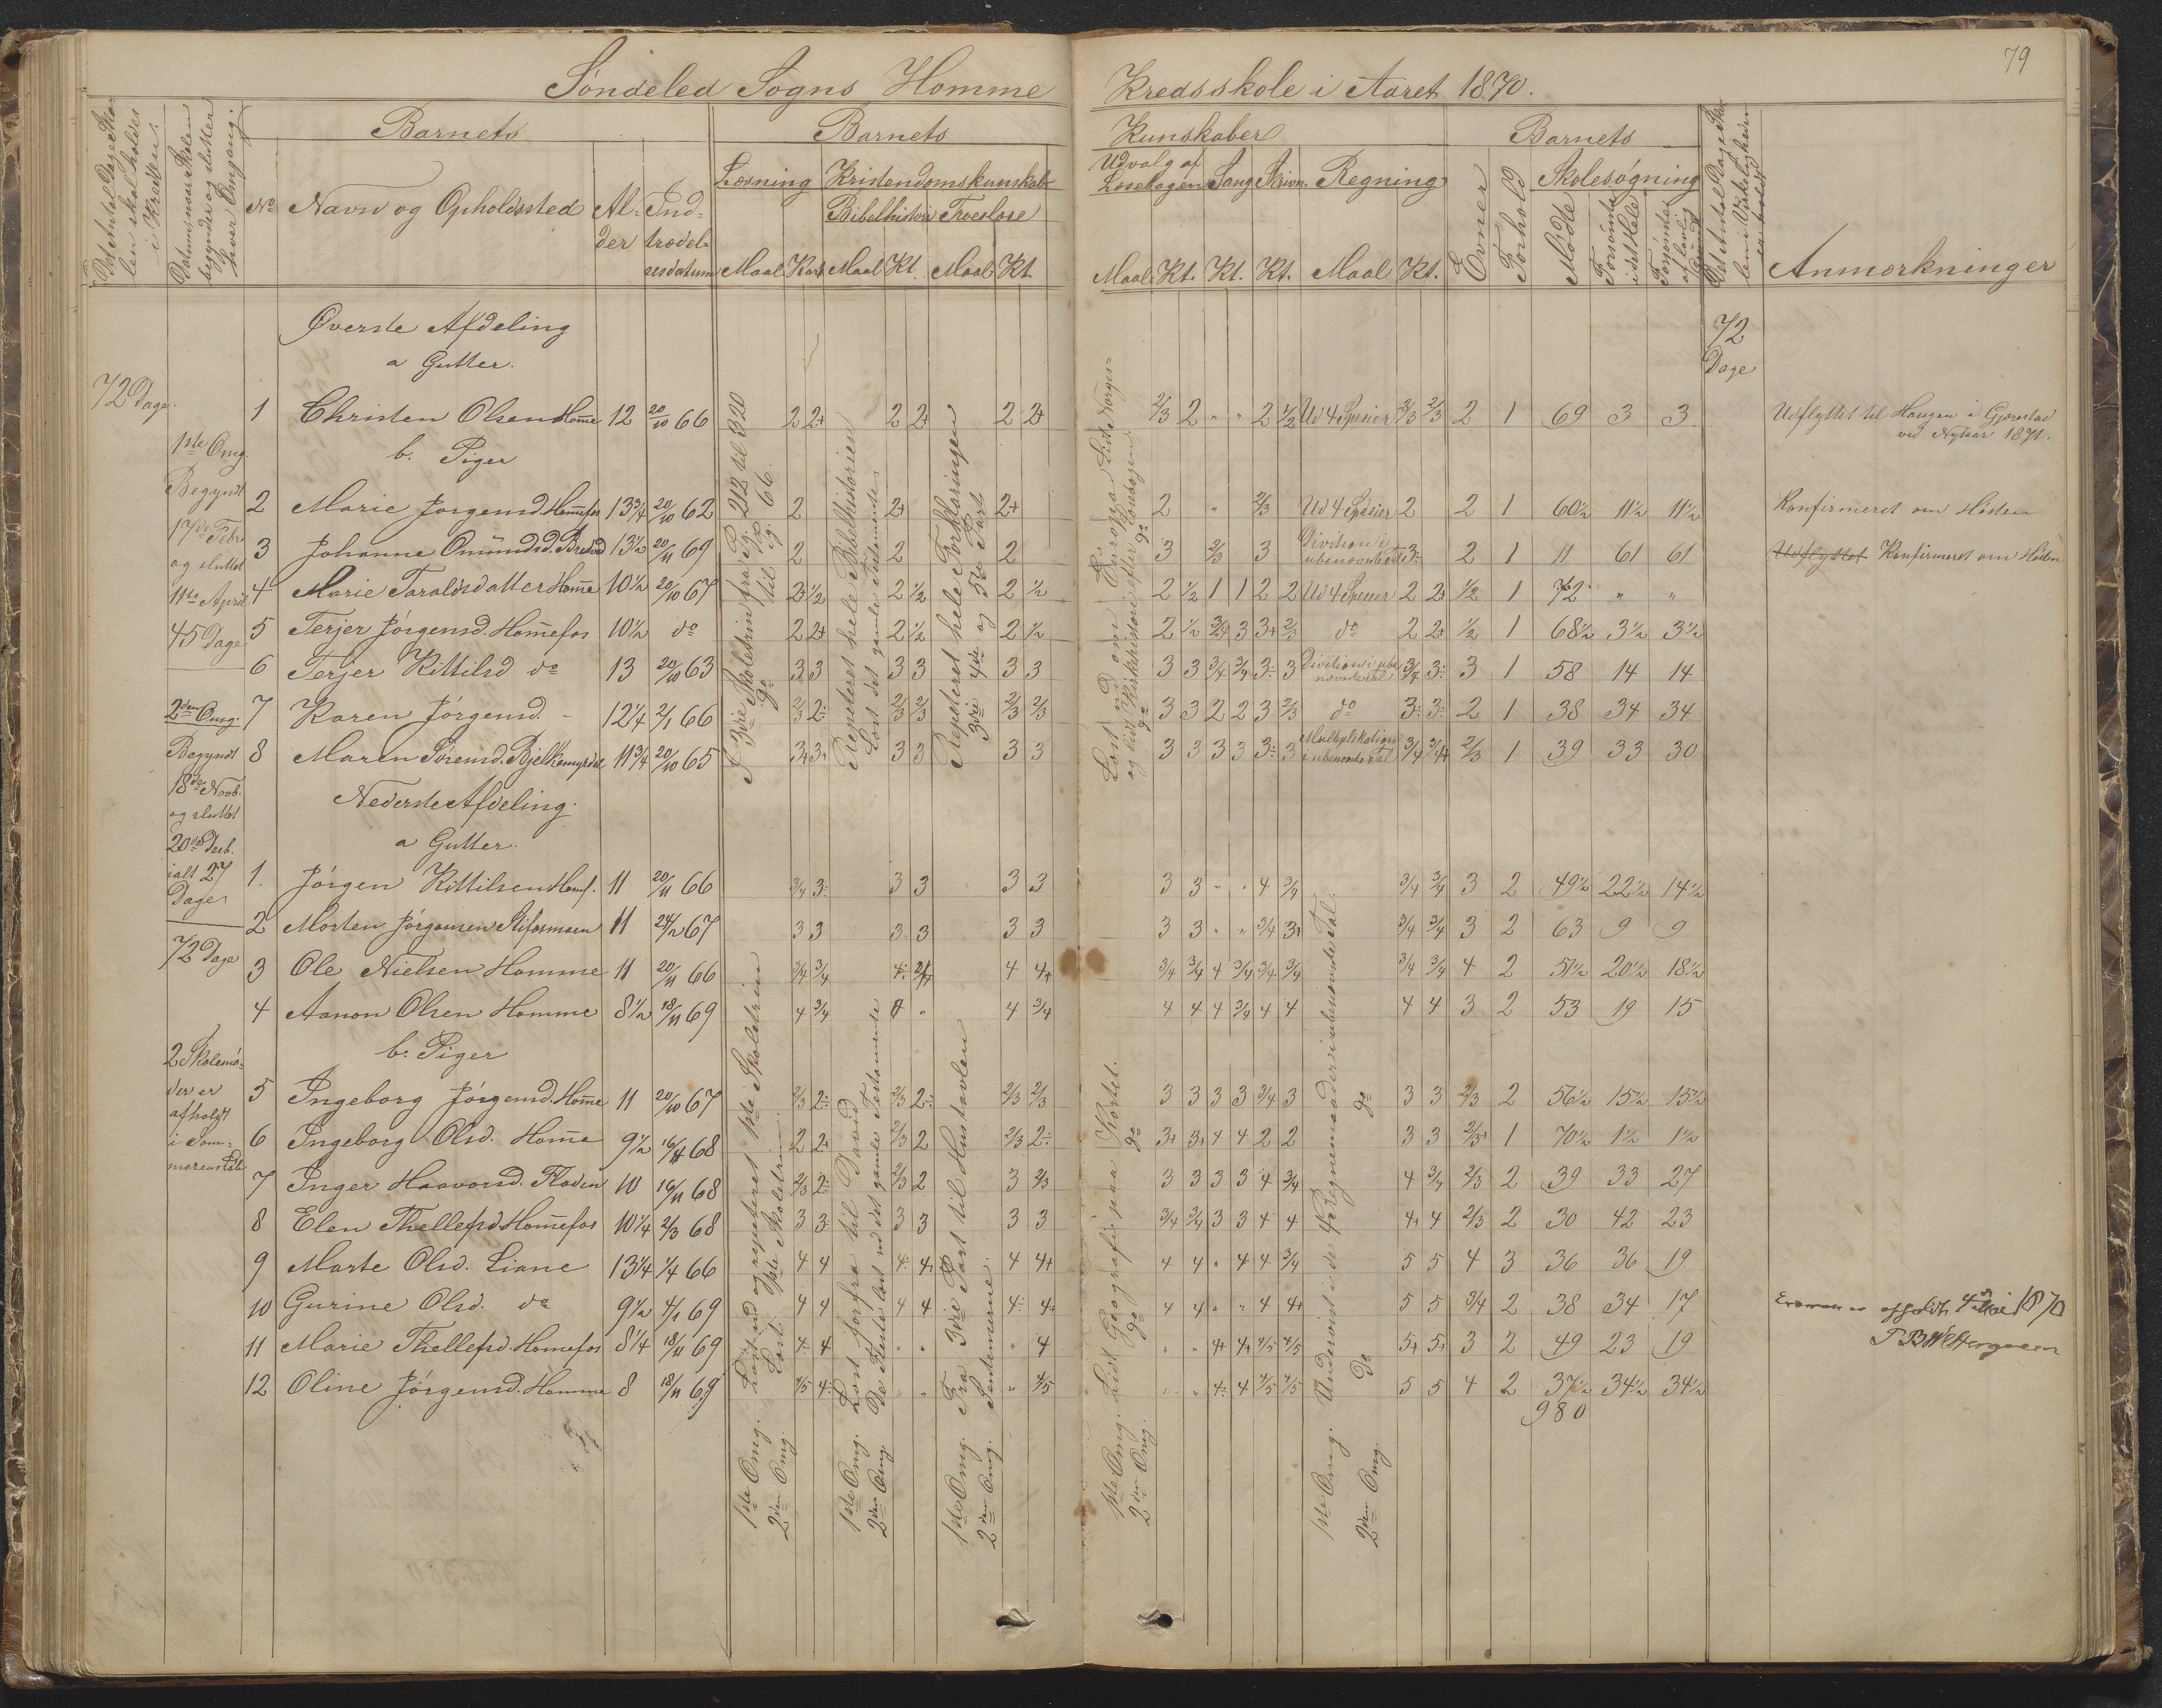 79
Søndeled Sogns Homme Kredsskole i Aaret 1870.
Det Antal Dage Skolen skal holdes i Kredsen.
Datum, naar Skolen begynder og slutter hver Omgang.
Barnets
Barnets
Kunskaber
Barnets
No
Navn og Opholdssted
Alder
Indtrædelsesdatum
Læsning
Kristendomskunskab
Bibelhistorie
Troeslære
Udvalg af Læsebogen
Sang
Skrivn.
Regning
Evner
Forhold
Skolesøgning
Mødte
Forsømte i det Hele
Forsømte af lovlig Grund
Det Antal Dage Skolen i Virkeligheden er holdt
Anmærkninger
Maal Kart. Maal Kt. Maal Kt.
Maal Kt. Kt. Kt. Maal Kt.
Øverste Afdeling
72 Dage
a Gutter.
72 Dage.
1 Christen Olsen Homme 12 20/10 66 2 2+ 2 2+ 2 2+ 2/3 2 " " 2 1/2 Ud 4 Spesier 2/3 2/3 2 1 69 3 3 Udflyttet til Haugen i Gjerestad
ved Nytaar 1871.
b. Piger
2 Marie Jørgensd. Homefos 13 3/4 20/10 62 2 2+ 2+ 2 " 2/3 Ud 4 Spesier 2 2 1 60 1/2 11 1/2 11 1/2 Konfirmeret om Høsten
3 Johanne Omundsd. 13 1/2 20/11 69 2 2 2 3 2/3 3 Division i ubenævnte 3÷ 2 1 11 61 61 Udflyttet Konfirmeret om Høsten
4 Marie Taraldsdatter Home 10 1/2 20/10 67 2+ 1/2 2 1/2 2 1/2 2 1/2 1 1 2 2 Ud 4 Spesier 2 2+ 1/2 1 72 " "
5 Terjer Jørgensd. Homefos 10 1/2 do 2 2+ 2 1/2 2 1/2 2 1/2 3/4 3 3+ 2/3 do 2 2+ 1/2 1 68 1/2 3 1/2 3 1/2
6 Terjer Kittilsd do 13 20/10 63 3 3 3 3 3 3 3 3 3/4 3/4 3÷ 3 Division i ubenævnte Tal 3/4 3÷ 3 1 58 14 14
7 Karen Jørgensd. - 12 1/4 2/1 66 2/3 2÷ 2/3 2/3 2/3 2/3 3 3 2 2 3 2/3 do 3÷ 3÷ 2 1 38 34 34
8 Maren Sørensd. 11 3/4 20/10 65 3+ 3+ 3 3 3 3 3 3 3 3 3÷ 3 Multiplikation i ubenævnte Tal 3/4 3/4+ 2/3 1 39 33 30
1ste Omg.
Begyndt
17de Febr.
og sluttet
11te April
45 Dage
2den Omg.
Begyndt
18de Novb.
og sluttet
20de Desb.
ialt 27
Dage
72 Dage
2 Skolemøder er
afholdt
i Sommerens Løb
I 3die Skoletrin fra Pg. 212 til 320
do til Pg. 66.
Repeteret hele Bibelhistorien
Læst det gamle Testamente
Repeteret hele Forklaringen
3die 4de og 5te Part
Læst ud om Europa Lidt Norges=
og lidt Kirkehistorie efter Læsebogen.
Nederste Afdeling.
a Gutter.
1. Jørgen Kittilsen Homf. 11 20/11 66 3/4 3÷ 3 3 3 3 3 3 " " 4 3/4 3/4 3/4 3 2 49 1/2 22 1/2 14 1/2
2 Morten Jørgensen 11 24/2 67 3 3 3 3 3 3 3 3 " " 3/4 3+ 3/4 3/4 3 2 63 9 9
3 Ole Nielsen Homme 11 20/11 66 3/4 3/4 4÷ 3/4 4 4+ 3/4 3/4 4 3/4 3/4 3/4 3/4 3/4 4 2 51 1/2 20 1/2 18 1/2
4 Aanon Olsen Homme 8 1/2 18/11 69 4 3/4 4 " 4 3/4 4 4 4 3/4 4 4 4 4 3 2 53 19 15
b. Piger
5 Ingeborg Jørgensd. Home 11 20/10 67 2/3 2÷ 2/3 2÷ 2/3 2/3 3 3 3 3 3/4 3 3 3 2/3 2 56 1/2 15 1/2 15 1/2
6 Ingeborg Olsd. Home 9 1/2 16/11 68 2 2+ 2/3 2 2/3 2÷ 3+ 3+ 4 4 2 2 3 3 2/3+ 1 70 1/2 1 1/2 1 1/2
7 Inger Haavorsd. Floden 10 16/11 68 2/3 2÷ 2/3 2 3 2/3 3 3 3 3 4 3/4 4 3/4 2/3 2 39 33 27
8 Elen Thellefsd. Homefos 10 1/4 2/3 68 3 3÷ 3 3 3 3 3/4 3/4 3 3 4 4 4+ 4 2/3 2 30 42 23
9 Marte Olsd. Liane 13 1/4 1/4 66 4 4 4÷ 4+ 4 4+ 4 4 " 4 4 3/4 5 5 4 3 36 36 19
10 Gurine Olsd. do 9 1/2 4/1 69 4 4 4 4 4÷ 4+ 4 4 " " 4 4+ 5 5 3/4 2 38 34 17
11 Marie Thellefsd. Homefos 8 1/4 18/11 69 4÷ 4 " " " 4 " " 4+ 4+ 4/5 4/5 5+ 5+ 3 2 49 23 19
12 Oline Jørgensd. Homme 8 18/11 69 4/5 4÷ " " " 4/5 " " 4÷ 4 4/5 4/5 5 5 4 2 37 1/2 34 1/2 34 1/2
980
Examen er afholdt 4 Mai 1870
1ste Omg. Læst ud og repeteret 1ste Skoletrin
2den Omg. Læst 1ste Skoletrin.
1ste Omg. Læst forfra til David
2den Omg. De Fleste læst ud det gamle Testamente
1ste Omg. Fra 3die Part til Hustavlen
2den Omg. Sentenserne.
1ste Omg. Lidt Geografi paa Kortet.
2den Omg. do do
1ste Omg. Undervist i de 4 Regnemaader i ubenævnte Tal.
2den Omg. do do